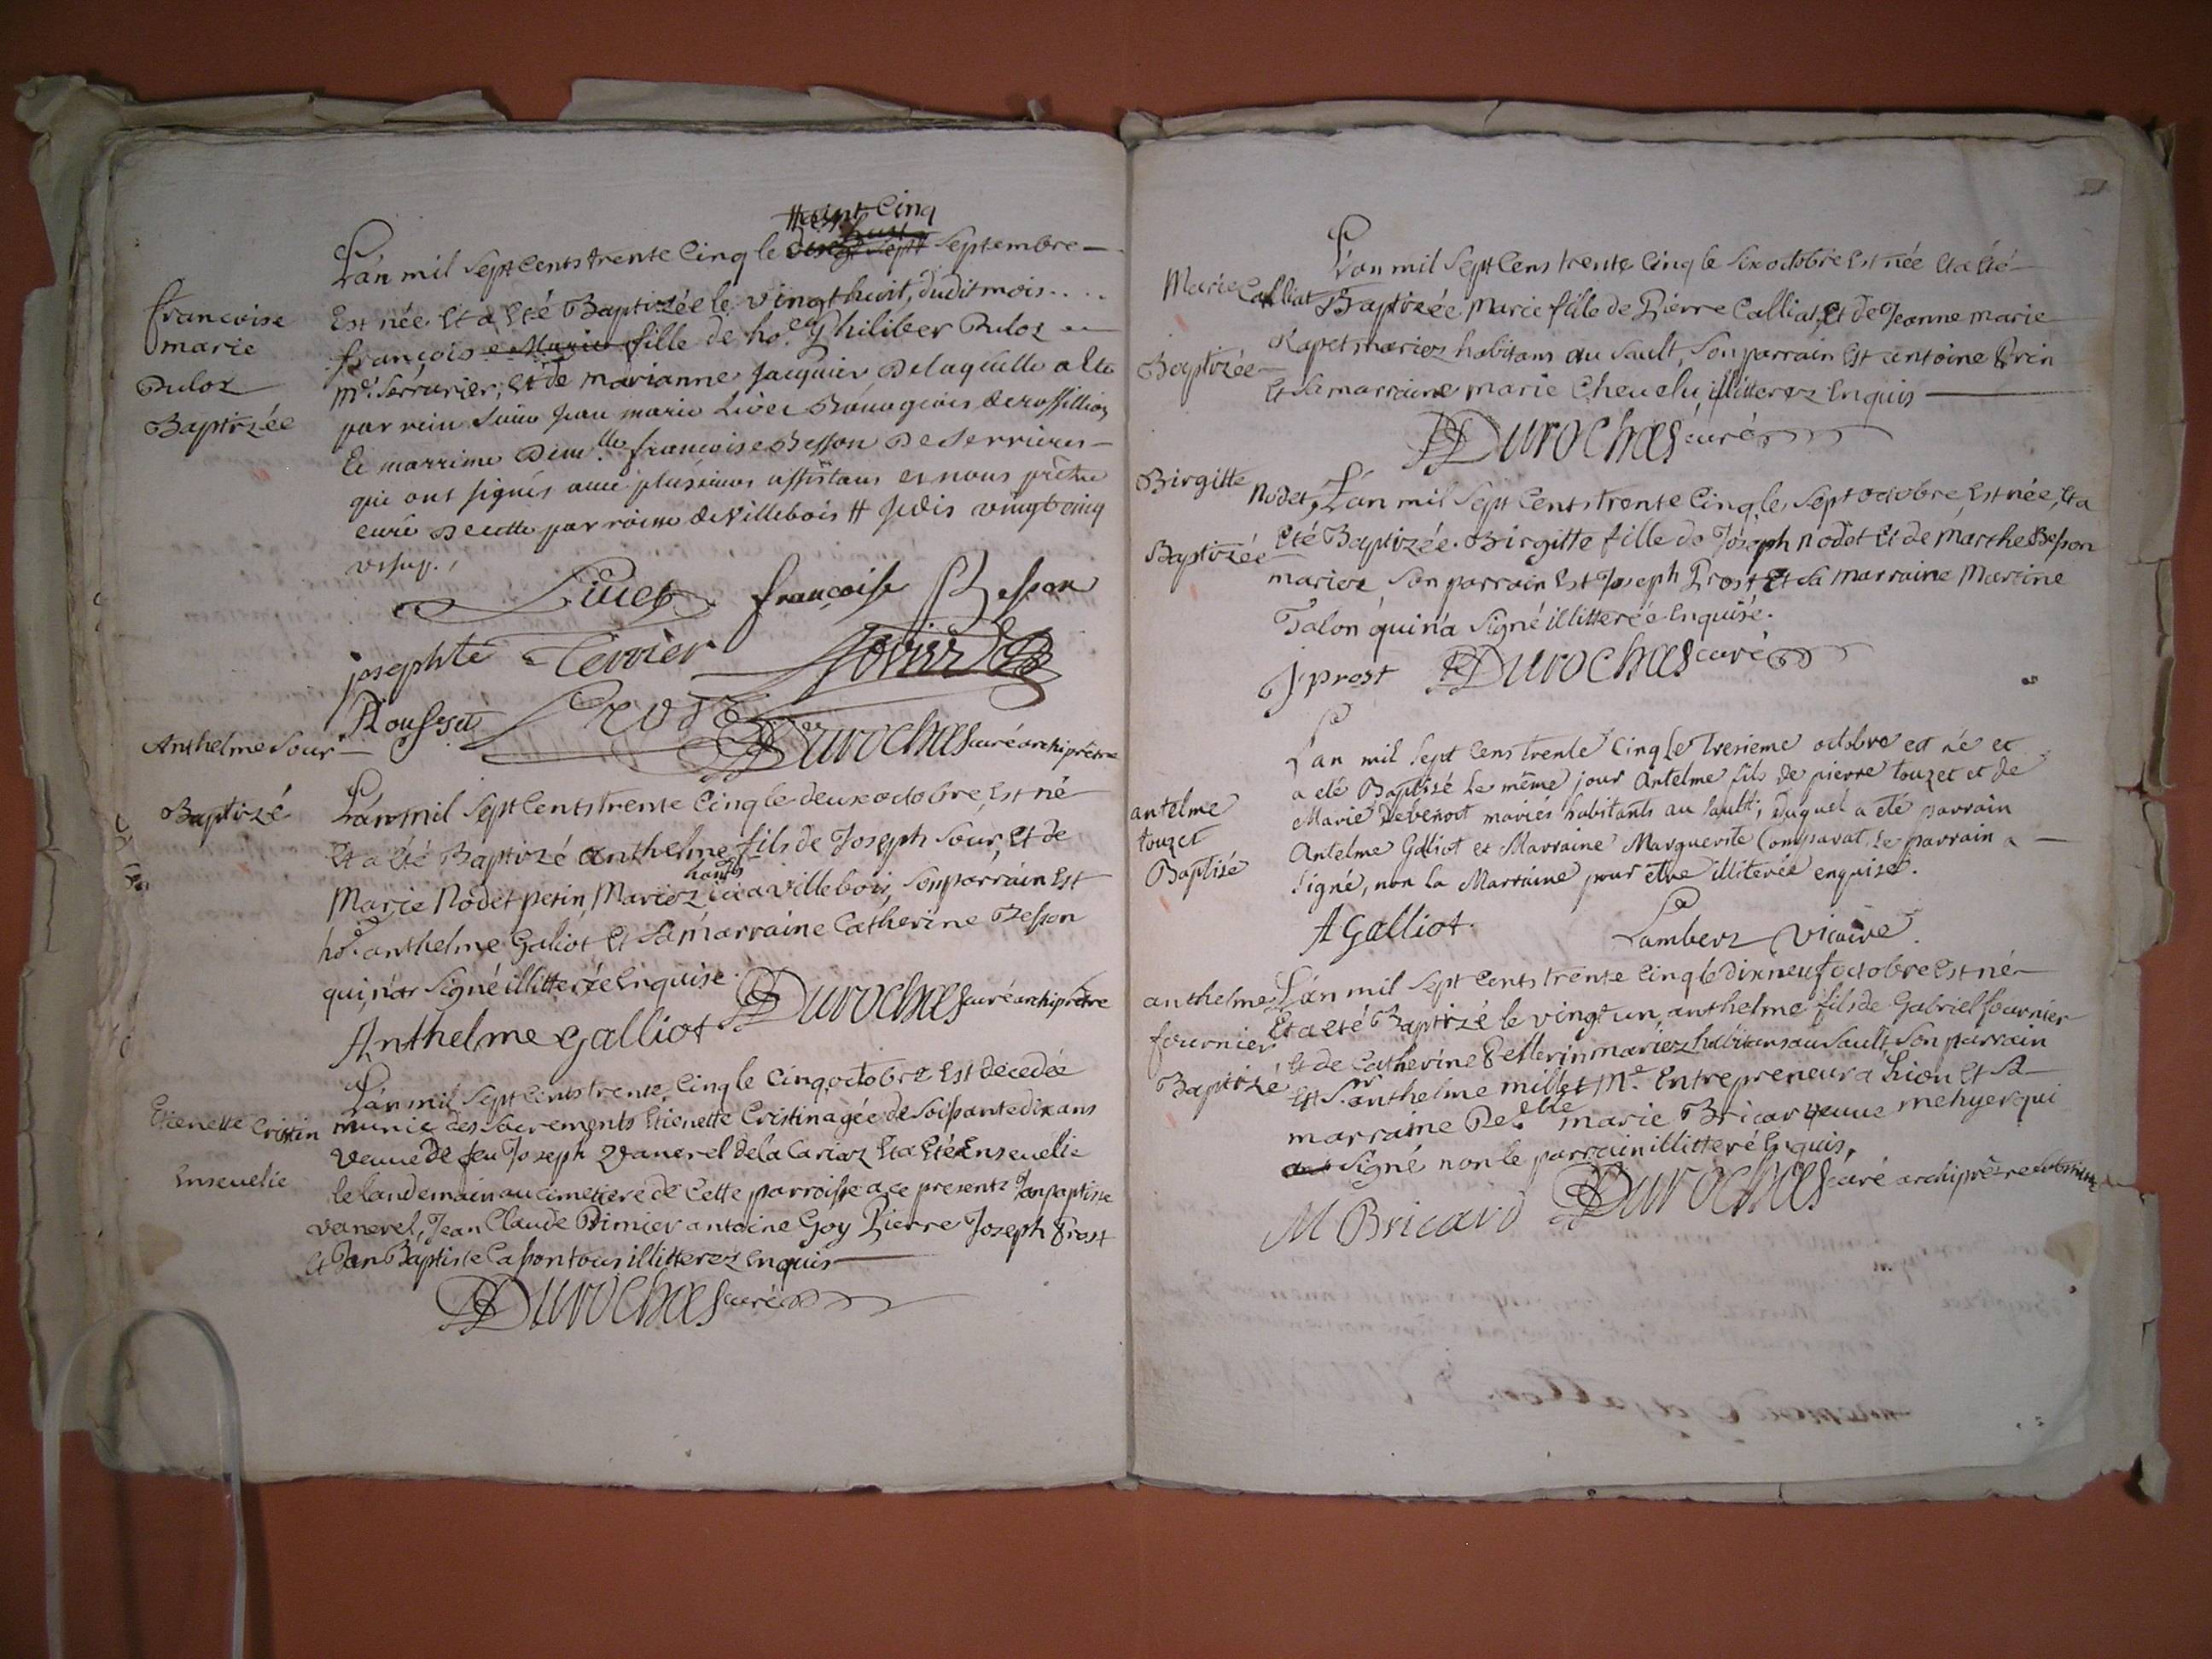 L'an mil sept cents trente cinq le vingt cinq septembre
Est née Et a Eté Baptizée le vingt huit, dudit mois....
françoise Marie fille de ho.e Philiber Puloz
francoise
marie
Puloz
Baptizée
m.e serrurier, Et de marianne Jacquier De laquelle a Ete
par rein Jean marie Livet Bourgeois de rossillion
Et marrine Dem.lle françoise Besson De Serrieres
qui ont signés avec plusieurs assistans et nous prêtre
curé De cette parroisse de Villebois # Je dis vingt cinq
Livet françoise Besson
josephte Terrier
Rousset Prost
DDurochas curé archiprêtre
Anthelme Sour
Baptizé
L'an mil sept cents trente Cinq le deux octobre, Est né
Et a Eté Baptizé anthelme fils de Joseph Sour, Et de
Marie Nodet perin, Mariez habts icia villebois, son parrain Est
ho.e anthelme Galiot Et sa marraine Catherine Besson
qui n'a signé illitterée Enquise
DDurochas curé archiprêtre
Anthelme Galliot
L'an mil sept cents trente Cinq le Cinq octobre Est décedée
Etienette Cristin
munie des sacrements Etienette Cristin agée de soissante dix ans
veuve de feu Joseph Vanerel de la Cariaz Et a Eté Ensevelie
Ensevelie
le landemain au cimetiere de cette parroisse a ce presents Jan paptiste
vanerel, Jean Claude Primier antoine Goy Pierre Joseph Prost
Et Jan Baptiste Casson tous illitterez Enquis
DDurochas curé
L'an mil sept Cens trente Cinq le six octobre Est née Et a Eté
Marie Calliat
Baptizée
Baptizée Marie fille de Pierre Calliat, Et de Jeanne marie
Rapet mariez habitans au Sault, son parrain Est antoine Prin
Et sa marraine marie Chevelu, illitterez Enquis
DDurochas curé
Birgitte Nodet
Baptizée
L'an mil sept Cents trente Cinq le sept octobre, Est née, Et a
Eté Baptizée Birgitte fille de Joseph Nodet Et de Marthe Besson
mariez son parrain Est Joseph Prost, Et sa marraine Martine
Talon qui n'a signé illitterée Enquise.
J prost DDurochas curé
L'an mil sept Cens trente Cinq Le tresieme octobre est né et
a eté Baptisé Le même jour Antelme fils de pierre touzet et de
antelme
touzet
Baptisé
Marie Debenoit mariés habitants au sault; Duquel a eté parrain
Antelme Galliot et Marraine Marguerite Comparat, Le parrain a
signé, non La Marraine pour etre illiterée enquise.
A Galliot. Lambert vicaire.
anthelme
fournier
Baptizé
L'an mil sept Cents trente Cinq le dix neuf octobre Est né
Et a eté Baptizé le vingt un, anthelme fils de Gabriel fournier
Et de Catherine Pellerin mariez habitans au Sault, son parrain
Est S.r anthelme millet M.e Entrepreneur a Lion Et sa
marraine De.lle marie Bricar veuve mehyer qui
a signé non le parrain illitteré Enquis,
M Bricard DDurochas curé archiprêtre